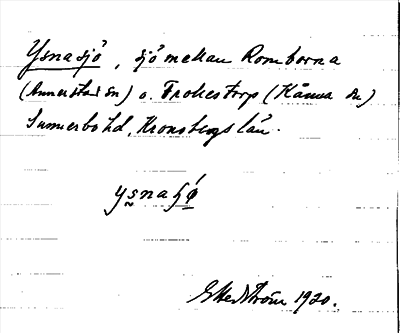 Ysnasjö, sjö mellan Romborna
(Annerstad sn) o. Trotestorp (Kånna sn)
Sunnerbo hd, Kronobergs län.
ysnaɧǿ
Ekedström 1920.